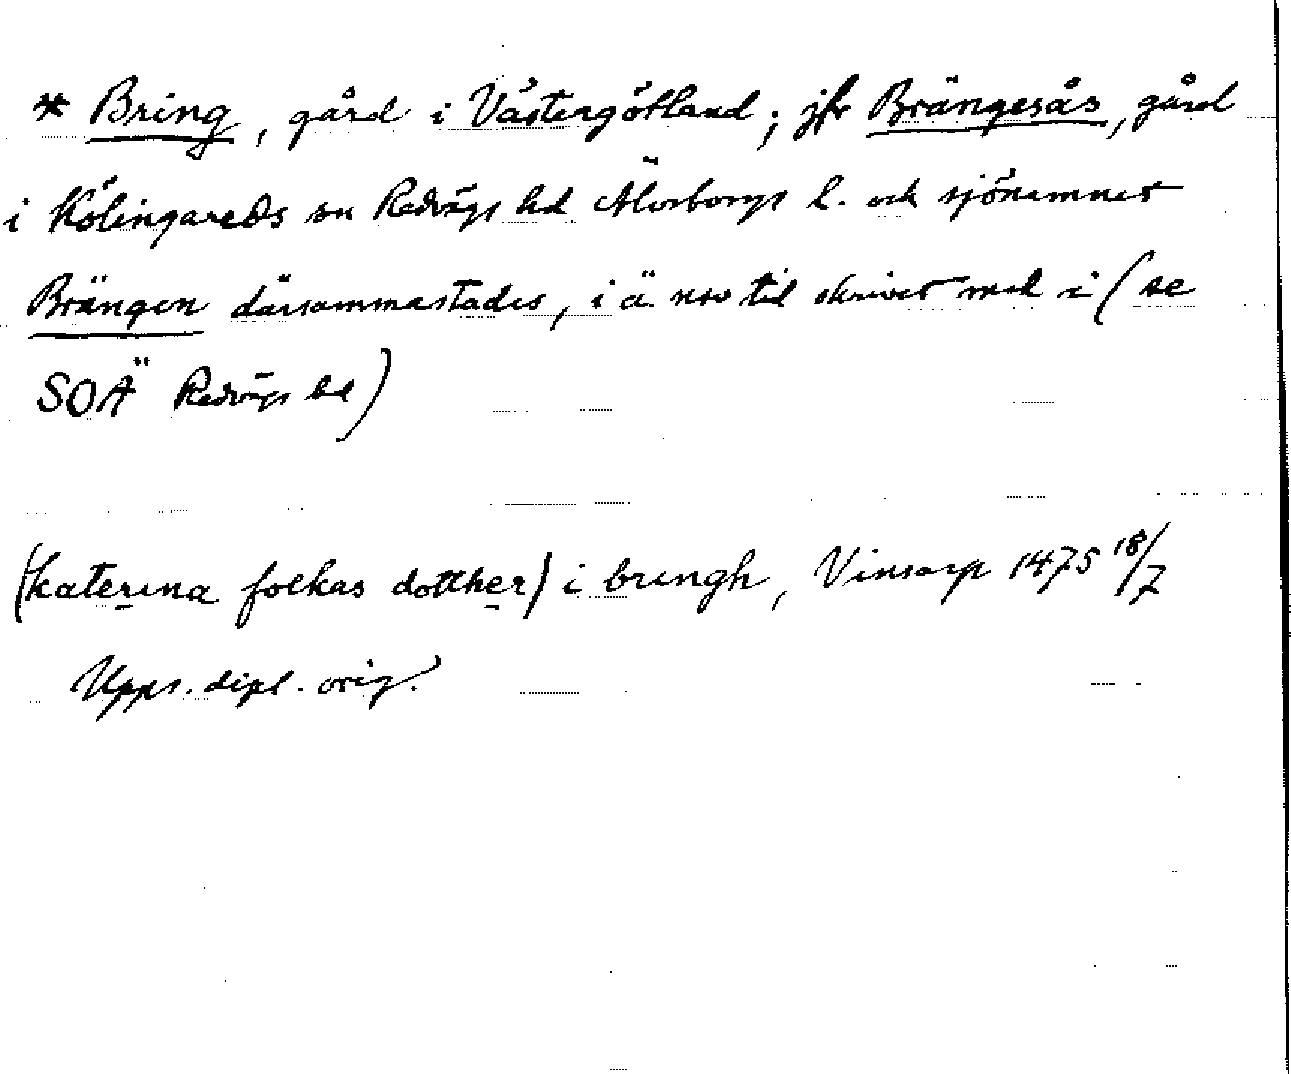 * Bring, gård i Västergötland; jfr Brängesås, gård
i Kölingareds sn Redvägs hd Älvsborgs l. och sjönamnet
Brängen därsammastades, i ä. nsv tid skrivet med i (se
SOÄ Redvägs hd)
(katerina folkas dotther) i bringh, Vinsarp 1475 18/7
Upps. dipl. orig.